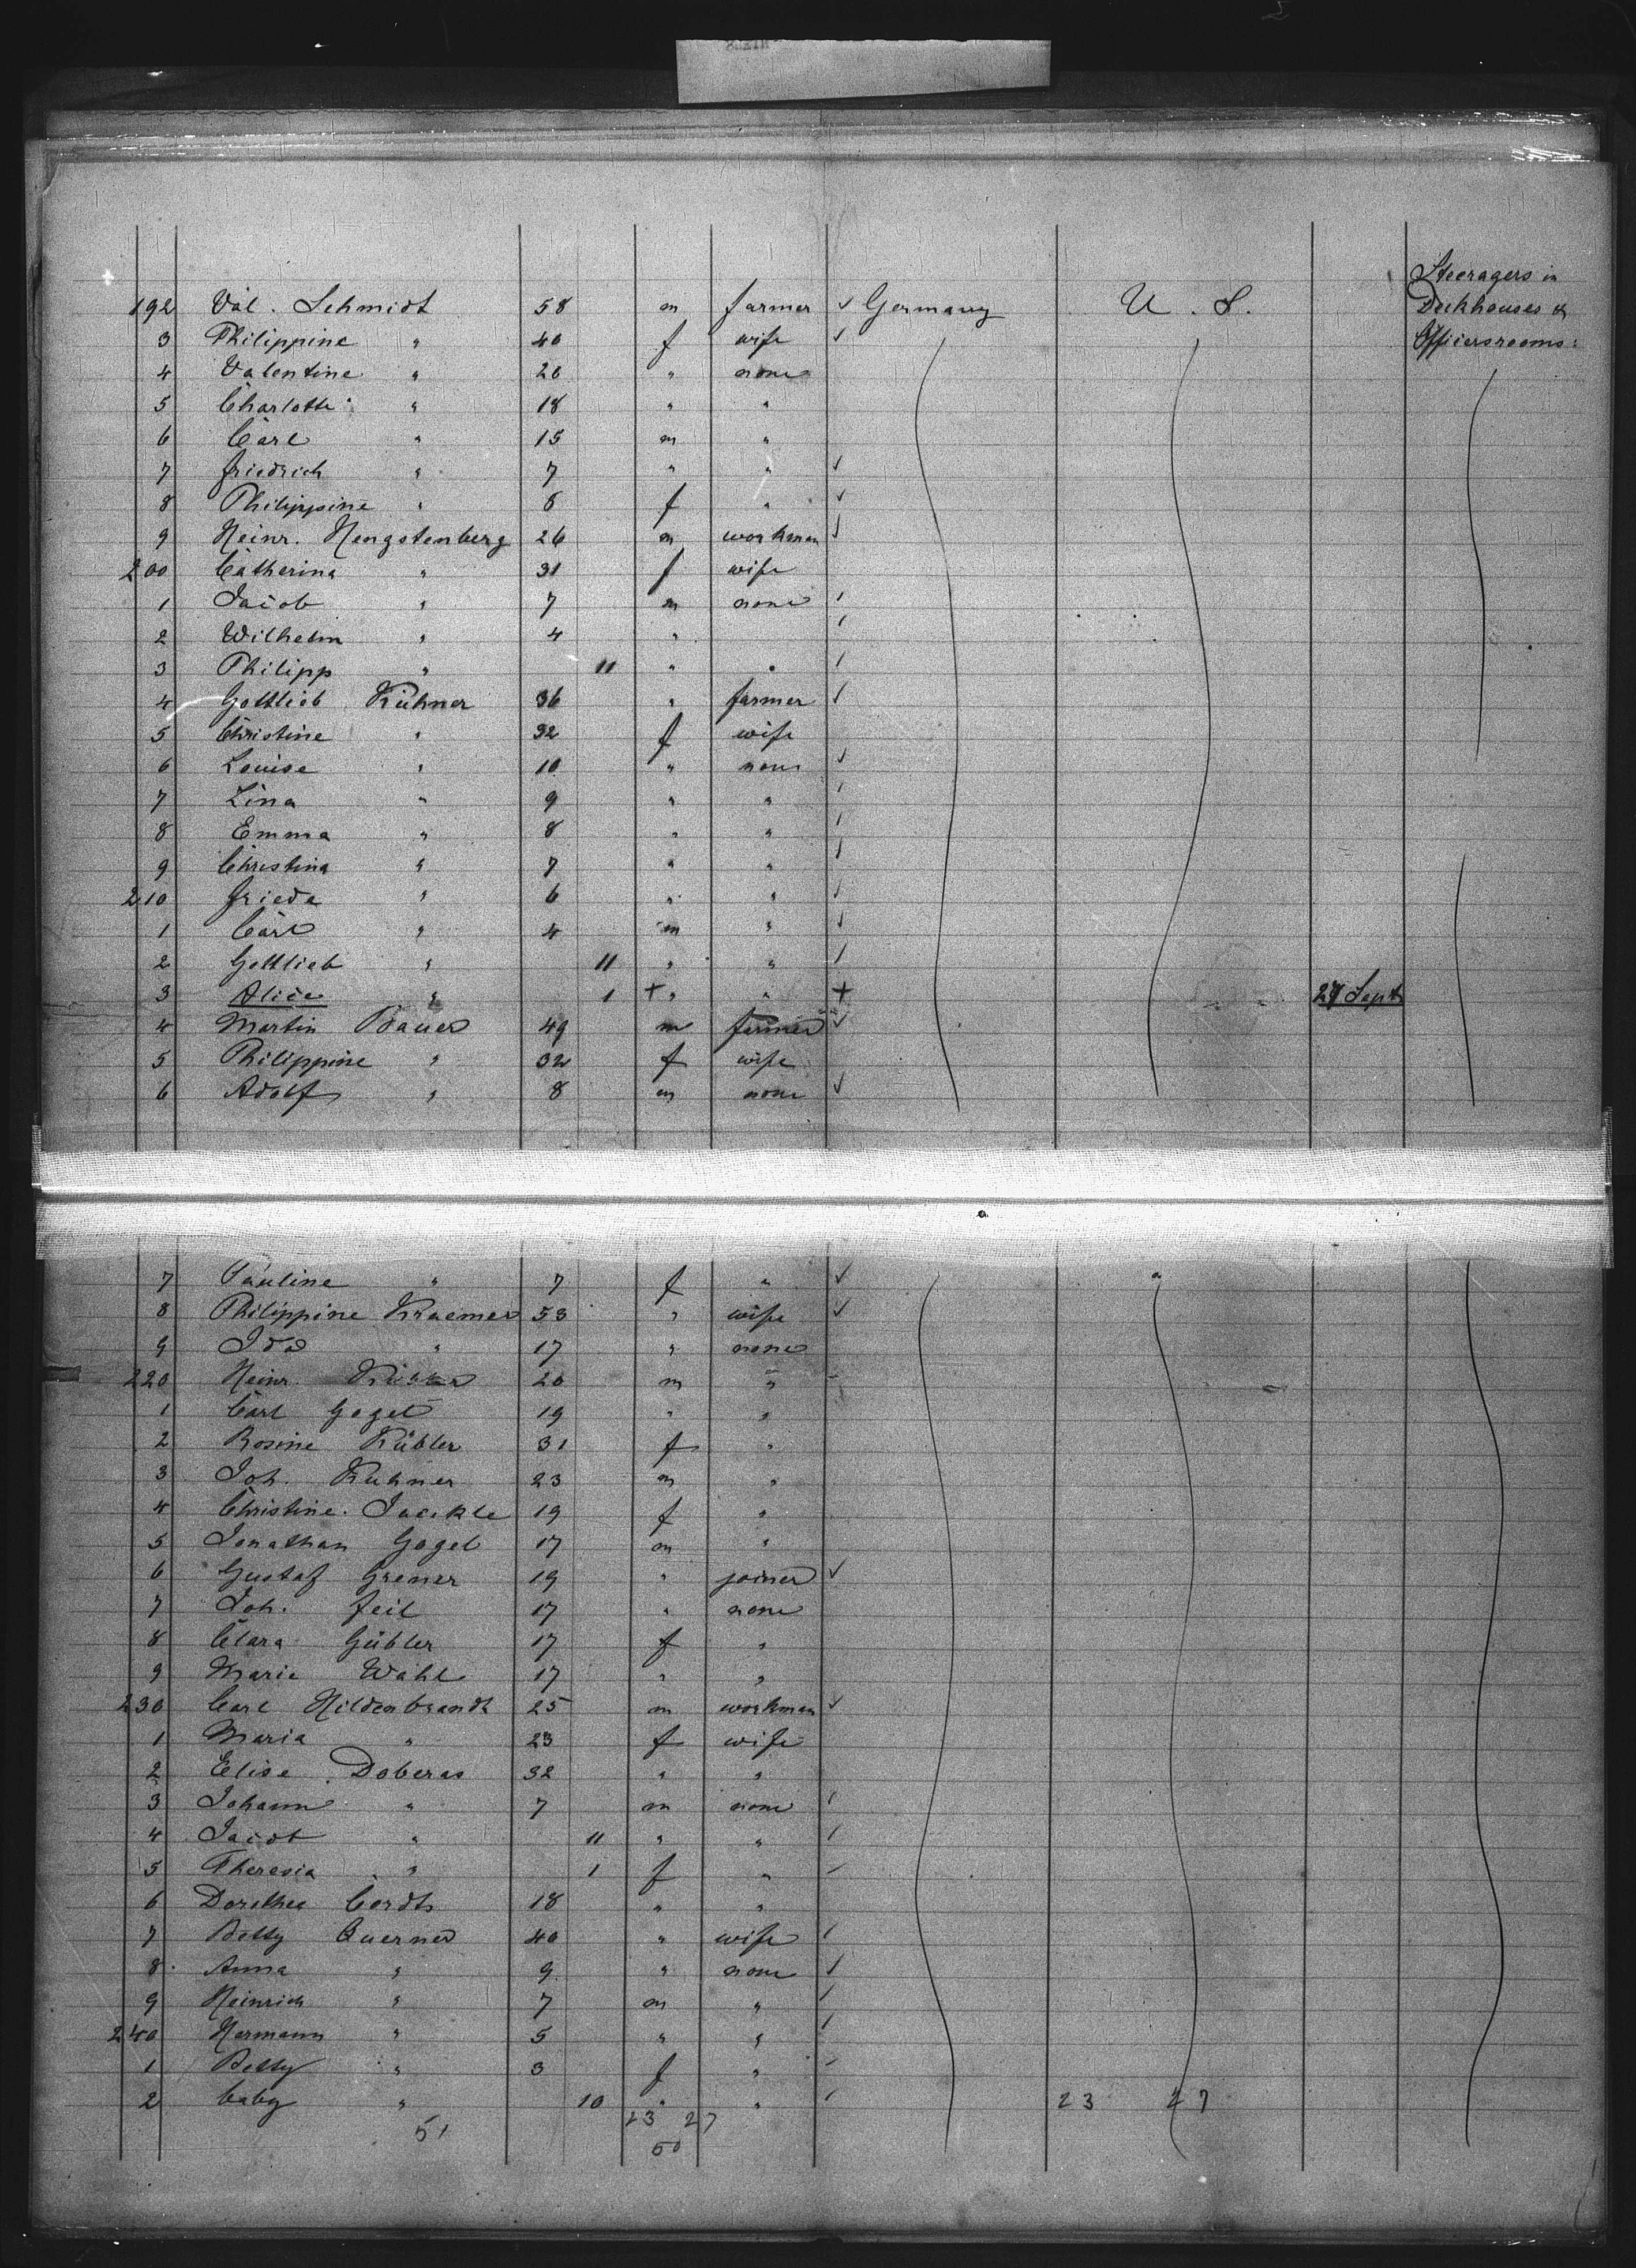 Steeragers in
192 Val. Schmidt 58 m farmer ✓ Germany U. S. Deckhouses &
3 Philippine " 40 f wife ✓ Officersrooms:
4 Valentine " 20 " none
5 Charlotte " 18 " "
6 Carl " 15 m "
7 Friedrich " 7 " " ✓
8 Philippine " 6 f " ✓
9 Heinr. Hengstenberg 26 m workman ✓
200 Catherina " 31 f wife
1 Jacob " 7 m none ✓
2 Wilhelm " 4 " ✓
3 Philipp " 11 " " ✓
4 Gottlieb Kühner 36 " farmer ✓
5 Christine " 32 f wife
6 Louise " 10 " none ✓
7 Lina " 9 " " ✓
8 Emma " 8 " " ✓
9 Christina " 7 " " ✓
210 Frieda " 6 " " ✓
1 Carl " 4 m " ✓
2 Gottlieb " 11 " " ✓
3 Alice " 1 + " " + Sept
4 Martin Bauer 49 m farmer ✓
5 Philippine " 32 f wife
6 Adolf " 8 m none ✓
7 Pauline " 7 f " ✓
8 Philippine Kraemer 53 " wife ✓
9 Ida " 17 " none
220 Heinr. 20 m "
1 Carl Gogel 19 " "
2 Rosine Kübler 31 f "
3 Joh. Kuhner 23 m "
4 Christine Jaeckle 19 f "
5 Jonathan Gogel 17 m "
6 Gustaf Grener 19 " joiner ✓
7 Joh. Feil 17 " none
8 Clara Gübler 17 f "
9 Marie Wahl 17 " "
230 Carl Hildenbrandt 25 m workman ✓
1 Maria " 23 f wife
2 Elise Doberas 32 " "
3 Johann " 7 m none ✓
4 Jacob " 11 " " ✓
5 Theresia " 1 f " ✓
6 Dorothea Cordts 18 " "
7 Betty Querner 40 " wife ✓
8 Anna " 9 " none ✓
9 Heinrich " 7 m " ✓
240 Hermann " 5 " " ✓
1 Betty " 3 f " ✓
2 baby " 10 " " ✓ 23 27
51 23 27
50